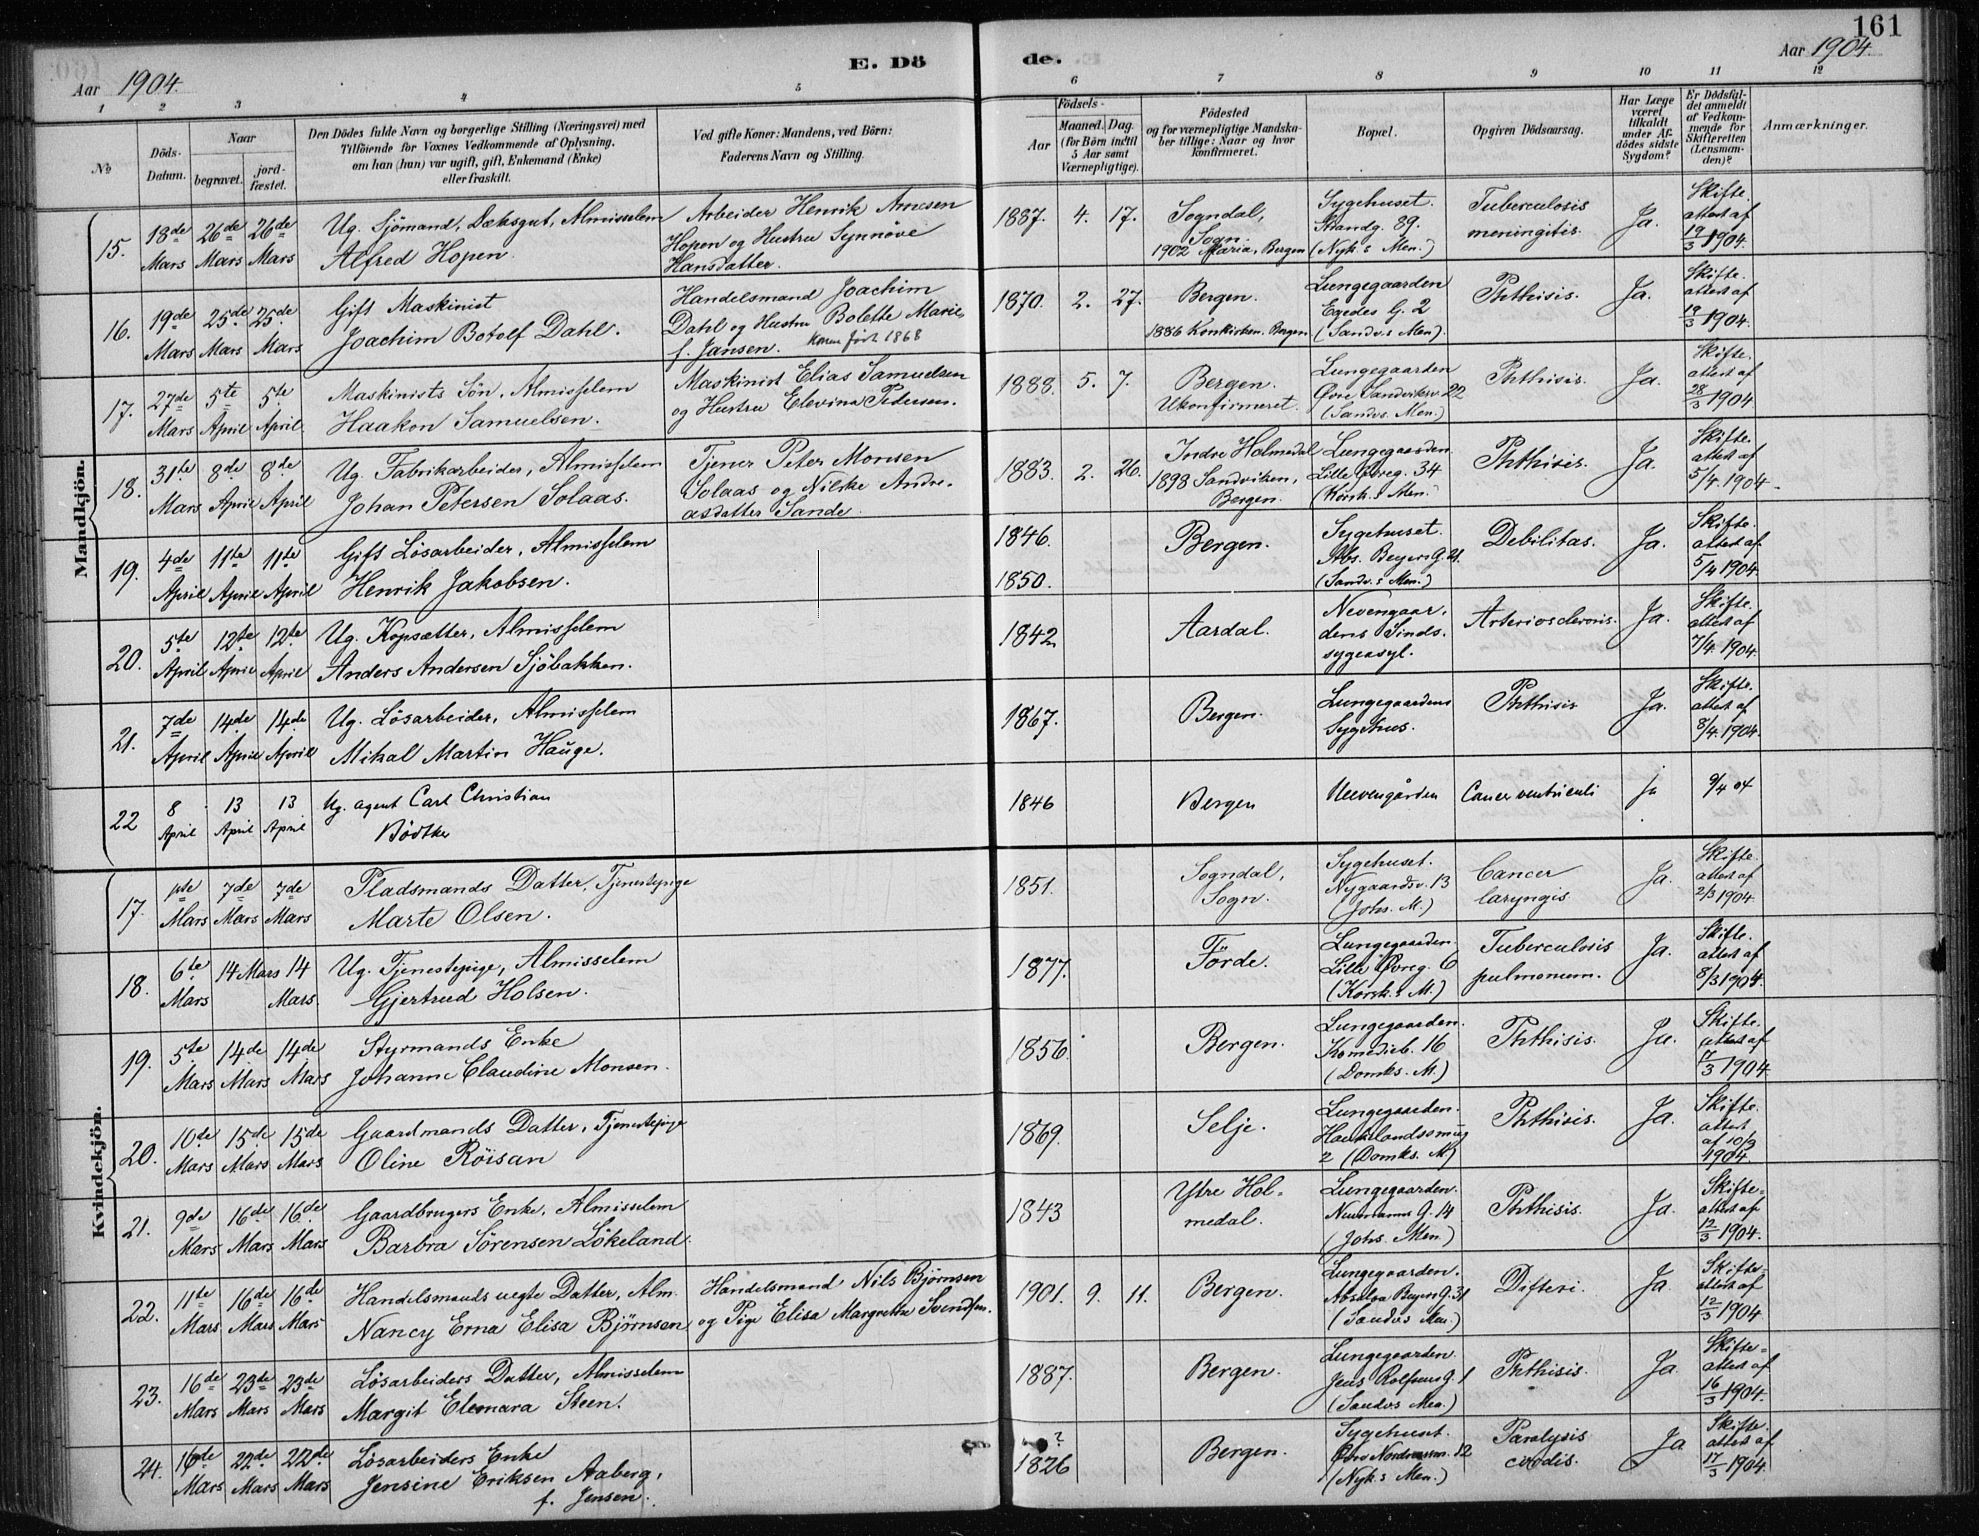 161
Aar 1904.
E. Döde.
Aar 1904.
1 2 3 4 5 6 7 8 9 10 11 12
No
Döds-Datum.
Naar
begravet.
jord-fæstet.
Den Dödes fulde Navn og borgerlige Stilling (Næringsvei) med
Tilföiende for Voxnes Vedkommende af Oplysning,
om han (hun) var ugift, gift, Enkemand (Enke)
eller fraskilt.
Ved gifte Koner: Mandens, ved Börn:
Faderens Navn og Stilling.
Födsels-
Aar
Maaned. Dag.
(for Börn indtil
5 Aar samt
Værnepligtige).
Födested
og for værnepligtige Mandska-
ber tillige: Naar og hvor
konfirmeret.
Bopæl.
Opgiven Dödsaarsag.
Har Læge
været
tilkaldt
under Af-
dödes sidste
Sygdom?
Er Dödsfal-
det anmeldt
af Vedkom-
mende for
Skifteretten
(Lensman-
den)?
Anmærkninger.
Mandkjön.
15. 18de Mars 26de Mars 26de Mars
Ug. Sjömand, Dæksgut, Almisselem
Alfred Hopen.
Arbeider Henrik Arnesen
Hopen og Hustru Synnöve
Hansdatter.
1887. 4. 17.
Sogndal,
Sogn.
1902 Maria, Bergen
Sygehuset.
Strandg. 89.
(Nyk.s Men.)
Tuberculosis
meningitis.
Ja.
Skifte.
attest af
19/3 1904.
16. 19de Mars 25de Mars 25de Mars
Gift Maskinist
Joachim Botolf Dahl.
Handelsmand Joachim
Dahl og Hustru Bolette Marie
f. Jansen. Konen født 1868
1870. 2. 27.
Bergen.
1886 Korskirken. Bergen
Lungegaarden
Egedes G. 2
(Sandv.s Men).
Phthisis.
Ja.
Skifte.
attest af
19/3 1904.
17. 27de Mars 5te April 5te April.
Maskinists Sön, Almisselem
Haakon Samuelsen.
Maskinist Elias Samuelsen
og Hustru Elevina Pedersen.
1888. 5. 7.
Bergen.
Ukonfirmeret.
Lungegaarden
Øvre Sandviksv. 22
(Sandvs. Men.)
Phthisis.
Ja.
Skifte.
attest af
28/3 1904
18. 31te Mars 8de April 8de April
Ug. Fabrikarbeider, Almisselem
Johan Petersen Solaas.
Tjener Peter Monsen
Solaas og Nilske Andre-
asdatter Sande.
1883. 2. 26.
Indre Holmedal
1898 Sandviken,
Bergen.
Lungegaarden
Lille Øvreg. 34
(Korsk.s Men.)
Phthisis.
Ja.
Skifte.
attest af
5/4. 1904.
19. 4de April 11te April 11te April
Gift Lösarbeider, Almisselem
Henrik Jakobsen.
1846.
1850.
Bergen.
Sygehuset.
Abs. Beyers G. 21.
(Sandv.s Men.)
Debilitas.
Ja.
Skifte.
attest af
5/4 1904.
20. 5te April 12te April 12te April
Ug. Kopsætter, Almisselem
Anders Andersen Sjöbakken.
1842
Aardal.
Nevengaar,
dens Sinds.
sygeasyl.
Arteriosclerosis.
Ja.
Skifte.
attest af
7/4. 1904.
21. 7de April 14de April 14de April
Ug. Lösarbeider, Almisselem
Mikal Martin Hauge.
1867.
Bergen.
Lungegaardens
Sygehus.
Phthisis
Ja.
Skifte.
attest af
8/4. 1904.
22 8 April 13 April 13 April
Ug. agent Carl Christian
Bödtker
1846
Bergen
Neevengården
Cancer ventriculi
ja
9/4 04
Kvindekjön.
17. 1ste Mars 7de Mars 7de Mars
Pladsmands Datter, Tjenestepige
Marte Olsen.
1851.
Sogndal,
Sogn.
Sygehuset.
Nygaardsv. 13
(Johs. M.)
Cancer
laryngis.
Ja.
Skifte.
attest af
2/3 1904.
18. 6te Mars 14 Mars 14 Mars
Ug. Tjenestepige, Almisselem
Gjertrud Holsen.
1877.
Förde.
Lungegaarden.
Lille Øvreg. 6
(Korsk.s M.)
Tuberculosis
pulmonum.
Ja.
Skifte.
attest af
8/3 1904.
19. 5te Mars 14de Mars 14de Mars
Styrmands Enke
Johanne Claudine Monsen.
1856.
Bergen.
Lungegaarden.
Komedieb. 16
(Domks. M.)
Phthisis.
Ja.
Skifte.
attest af
17/3 1904.
20. 10de Mars 15de Mars 15de Mars
Gaardmands Datter, Tjenestepige
Oline Röisan
1869.
Selje.
Lungegaarden.
Haukelandssmug
2 (Domks. M)
Phthisis.
Ja.
Skifte.
attest
af 10/3
1904.
21. 9de Mars 16de Mars 16de Mars
Gaardbrugers Enke, Almisselem
Barbra Sörensen Lökeland.
1843
Ytre Hol-
medal.
Lungegaarden.
Neumanns G. 14
(Johs. Men.)
Phthisis.
Ja.
Skifte-
attest af
12/3 1904.
22. 11te Mars 16de Mars 16de Mars
Handelsmands uegte Datter, Alm.
Nancy Erna Elisa Björnsen
Handelsmand Nils Björnsen
og Pige Elisa Margrethe Svendsen.
1901. 9. 11.
Bergen.
Lungegaarden.
Absalon Beyers G. 31
(Sandvs Men.)
Difteri.
Ja.
Skifte-
attest af
12/3 1904.
23. 16de Mars 23de Mars 23de Mars
Lösarbeiders Datter, Almisselem
Margit Elemara Steen.
1887.
Bergen.
Lungegaarden.
Jens Rolfsens G. 1
(Sandvs Men.)
Phthisis.
Ja.
Skifte-
attest af
16/3 1904.
24. 16de Mars 22de Mars 22de Mars
Lösarbeiders Enke
Jensine Eriksen Aaberg,
f. Jensen.
?
1826
Bergen.
Sygehuset.
12
(Nyk.s Men.)
Paralysis
cordis.
Ja
Skifte.
attest af
17/3 1904.